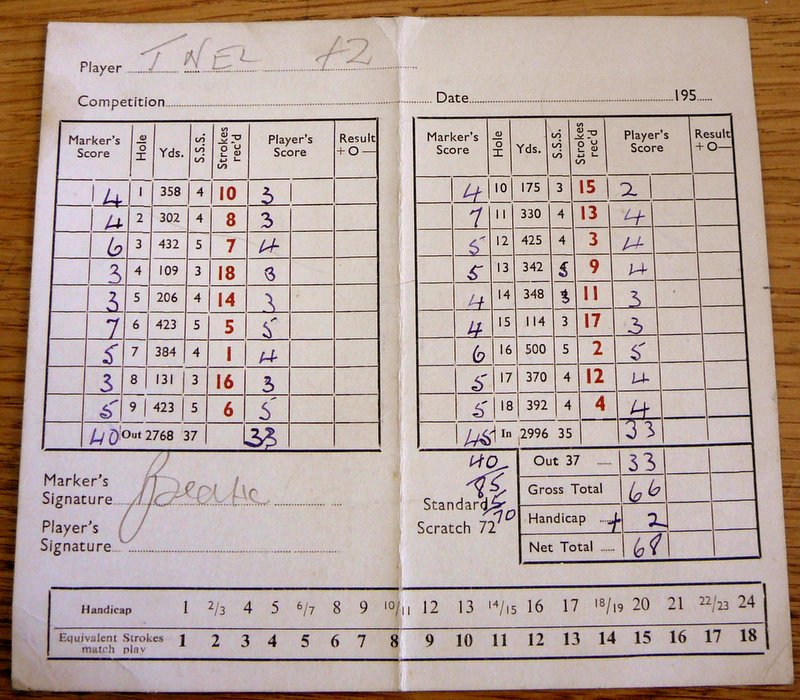 Player T NEL +2
Competition
Marker's Score Hole Yds. S.S.S. Strokes rec'd Player's Score Result + O —
4 1 358 4 10 3
4 2 302 4 8 3
6 3 432 5 7 4
3 4 109 3 18 3
3 5 206 4 14 3
7 6 423 5 5 5
5 7 384 4 1 4
3 8 131 3 16 3
5 9 423 5 6 5
40 Out 2768 37 33
Marker's
Signature
Player's
Signature
Date 195
Marker's Score Hole Yds. S.S.S. Strokes rec'd Player's Score Result + O —
4 10 175 3 15 2
7 11 330 4 13 4
5 12 425 4 3 4
5 13 342 5 9 4
4 14 348 3 11 3
4 15 114 3 17 3
6 16 500 5 2 5
5 17 370 4 12 4
5 18 392 4 4 4
45 In 2996 35 33
40 Out 37 33
85 Gross Total 66
Standard 15 Handicap + 2
Scratch 72 70 Net Total 68
Handicap 1 2/3 4 5 6/7 8 9 10/11 12 13 14/15 16 17 18/19 20 21 22/23 24
Equivalent Strokes
match play 1 2 3 4 5 6 7 8 9 10 11 12 13 14 15 16 17 18